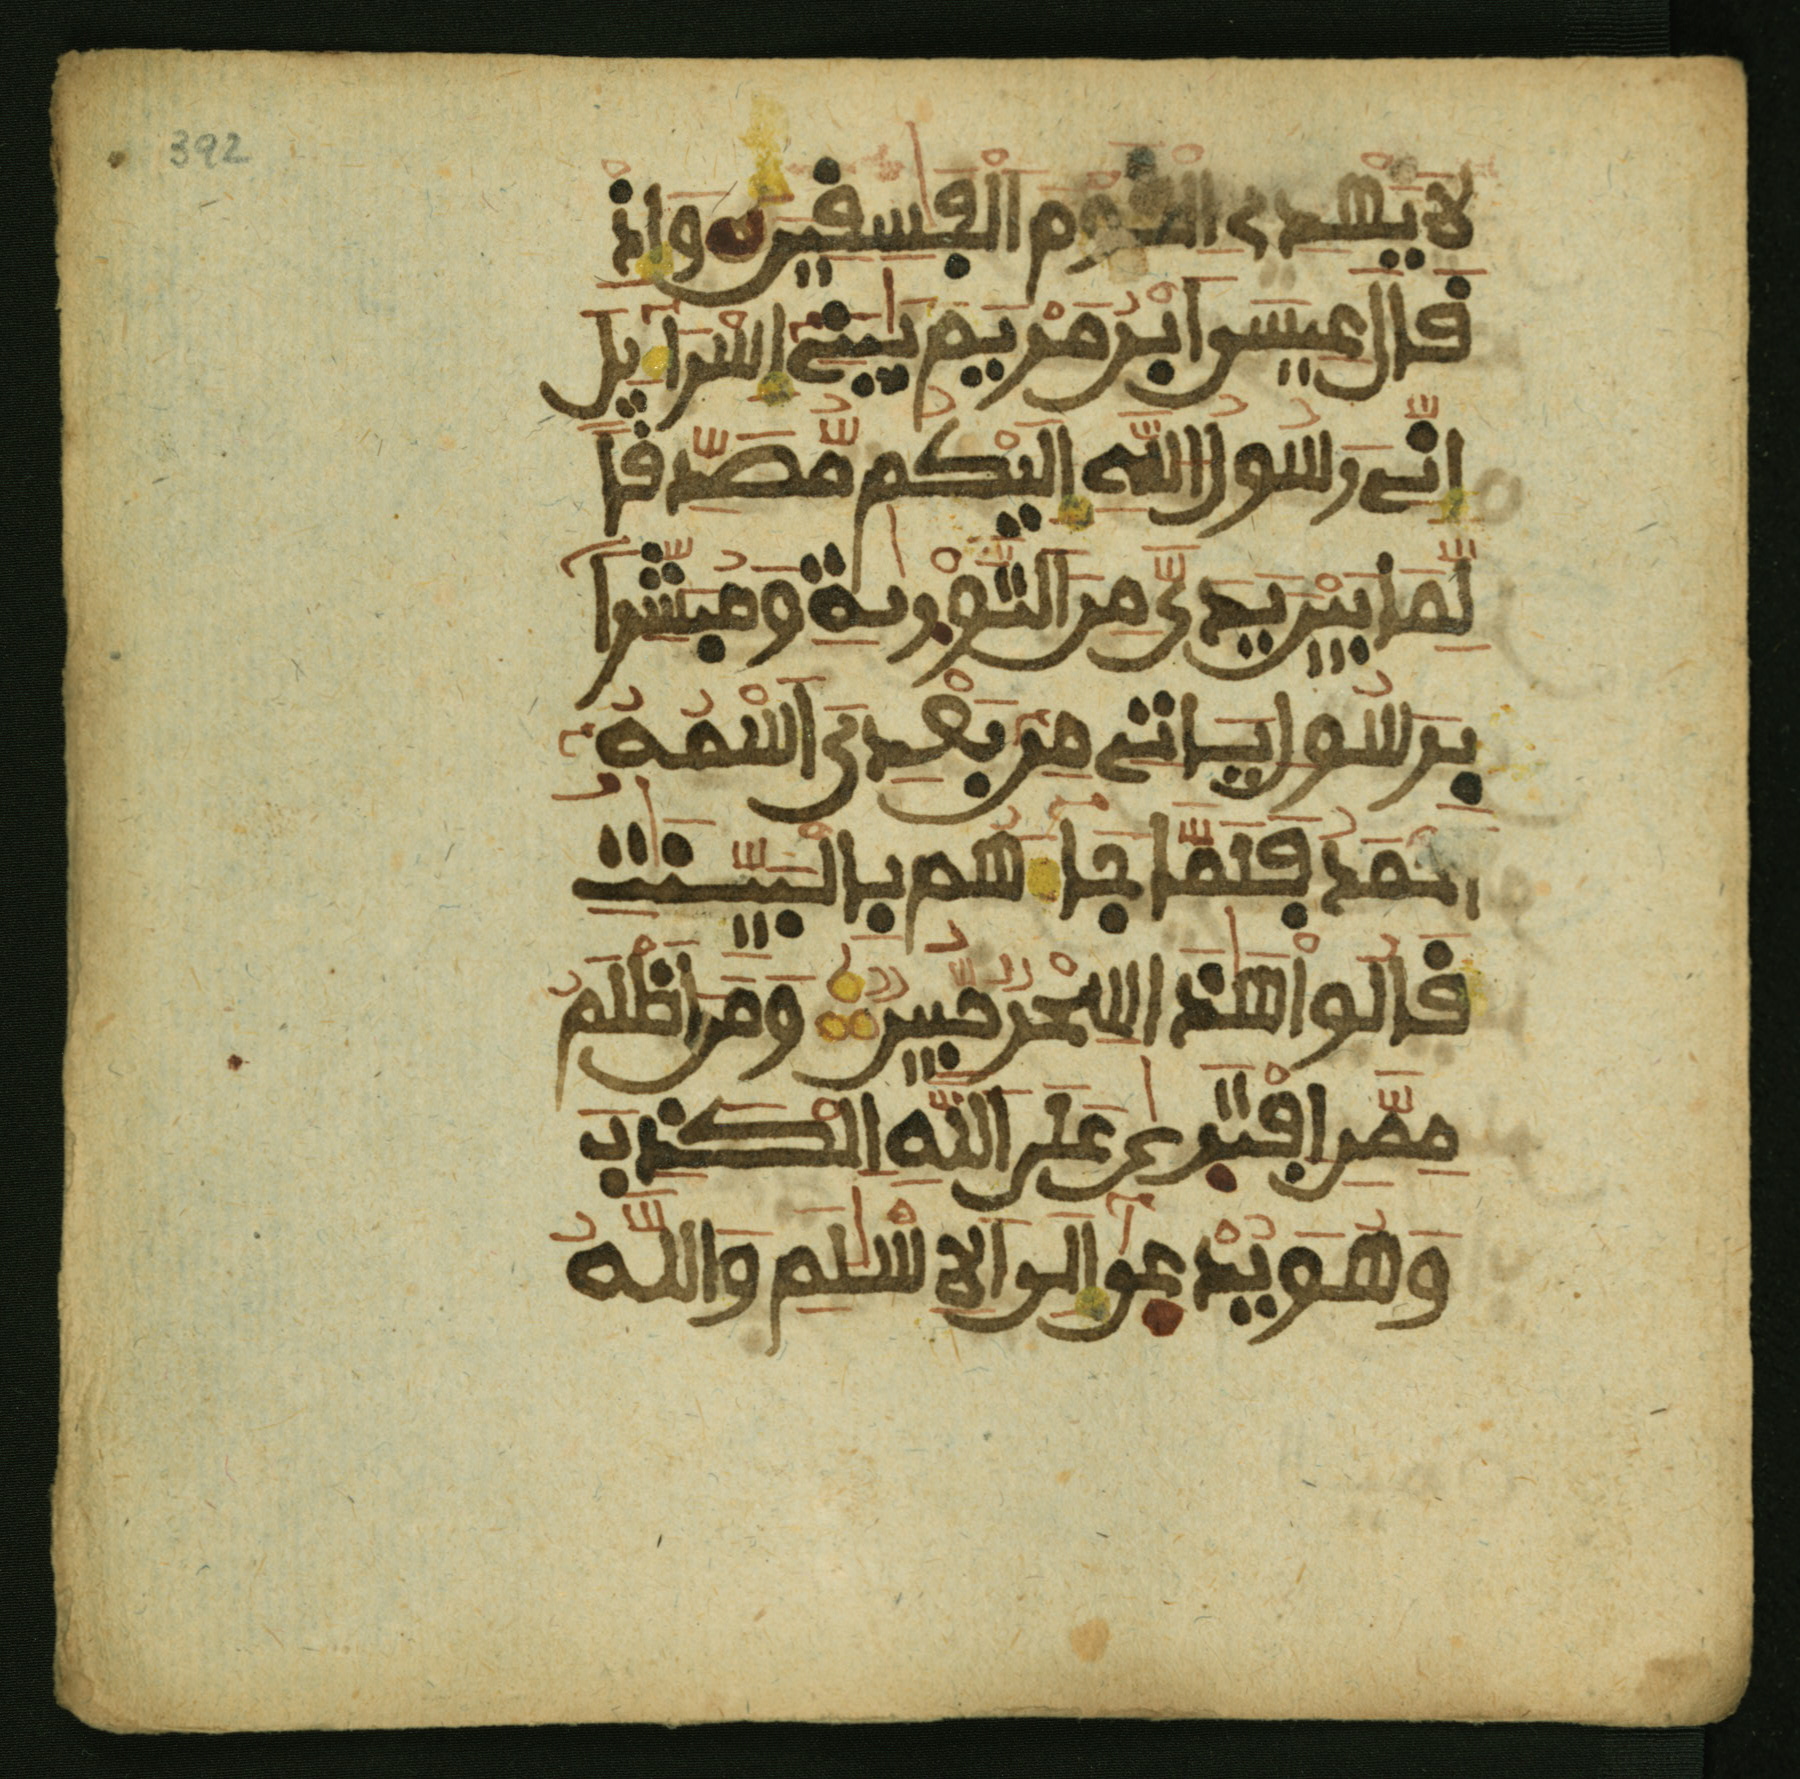 392
لَا يَهْدِى الْقَوْمَ الْڢَٰسِفِينَ وَإِذْ
فَالَ عِيسَى اَبْنُ مَرْيَمَ يَٰبَنِىٓ إِسْرَآءِيلَ
إِنِّى رَسُولُ اللَّهِ إِلَيْكُم مُّصَدِّفاً
لِّمَا بَيْنَ يَدَىَّ مِنَ التَّوْرَىٰةِ وَمُبَشِّراً
بِرَسُولٍ يَاتِى مِنۢ بَعْدِىَ اَسْمُهُۥٓ
أَحْمَدُ ڢَلَمَّا جَآءَهُم بِالْبَيِّنَٰتِ
فَالُوا هَٰذَا سِحْرٌ مُّبِينٌ وَمَنَ اَظْلَمُ
مِمَّنِ اِڢْتَرَىٰ عَلَى اللَّهِ الْكَذِبَ
وَهُوَ يُدْعَىٰٓ إِلَى الِاسْلَٰمِ وَاللَّهُ